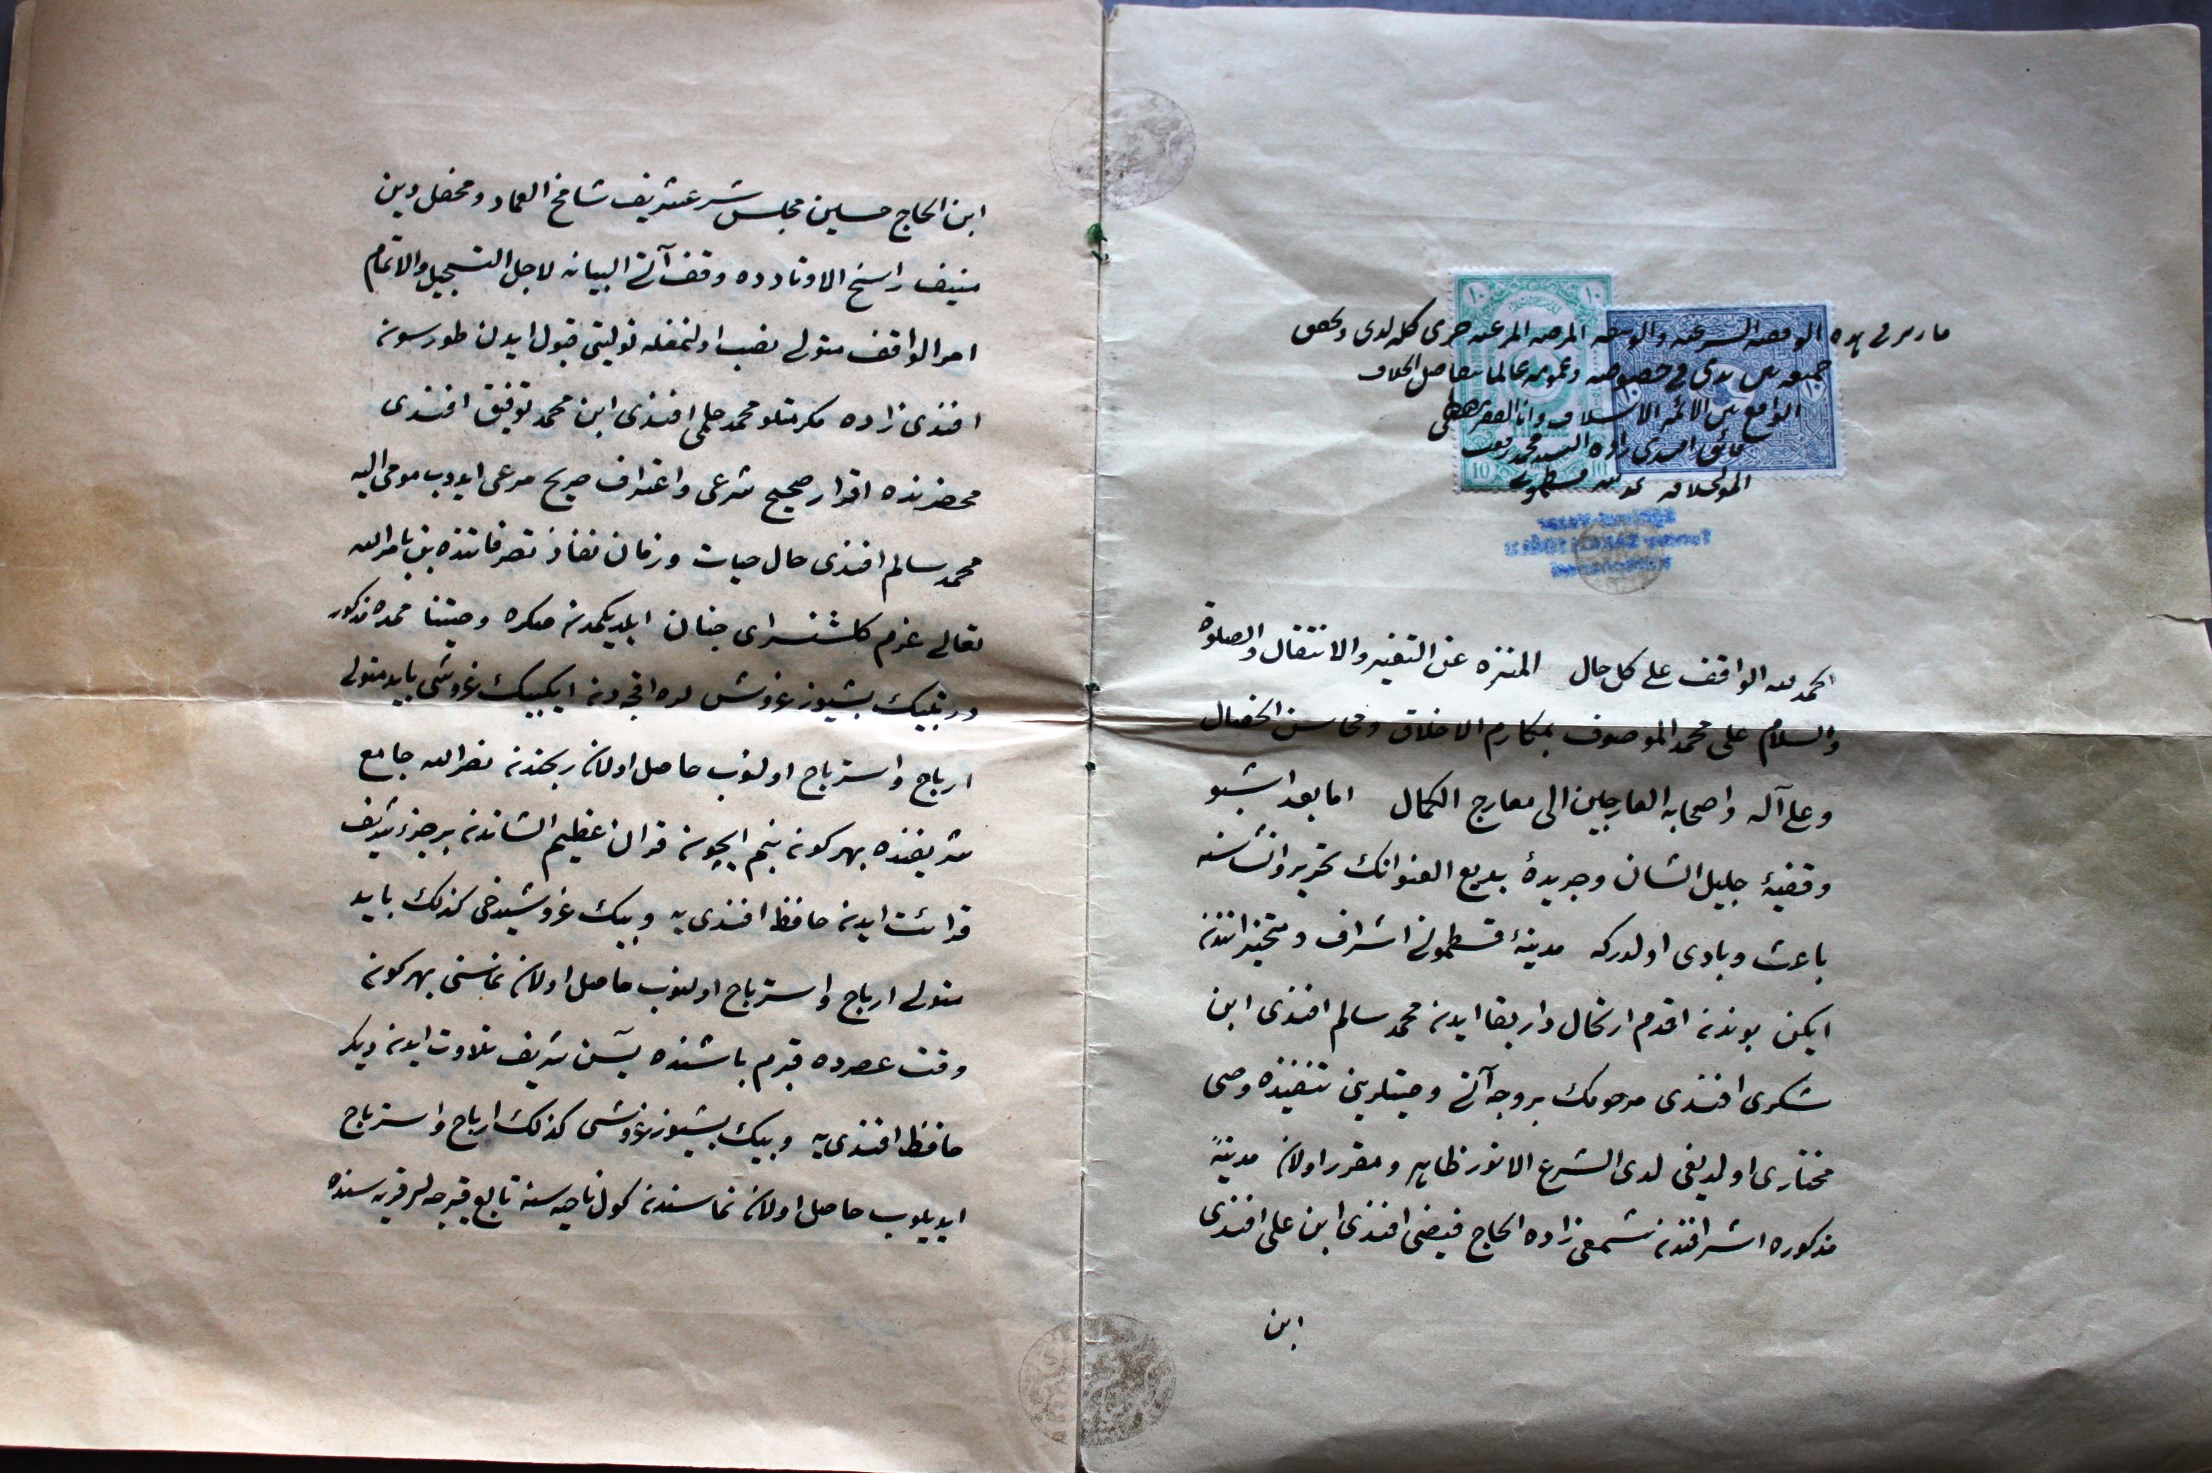 ما رسم فى هذه الوقفية الشرعية والوثيقة المرضية المرعية جرى كله لدى وتحقق
جميعه بين يدى فى خصوصه وعمومه عالما بتفاصل الخلاف
الواقع بين الائمة الاسلاف وانا الفقير
السيد محمد
المولى خلافة بمدينة قسطمونى
١٠ ١٠
10 10
الحمد لله الواقف على كل حال المنزه عن التغير والانتقال والصلوة
والسلام على محمد الموصوف بمكارم الاخلاق ومحاسن الخصال
وعلى آله واصحابه العارجين الى معارج الكمال اما بعد اشبو
وقفيهٔ جليل الشان وجريدهٔ بديع العنوانك تحرير وانشاسنه
باعث وبادى اولدركه مدينهٔ قسطمونى اشراف ومتحيزانندن
ايكن بوندن اقدم ارتحال دار بقا ايدن محمد سالم افندى ابن
شكرى افندى مرحومك بر وجه آتى وصيتلرينى تنفيذه وصى
مختارى اولديغى لدى الشرع الانور ظاهر ومقرر اولان مدينهٔ
مذكوره اشرافندن شمعى زاده الحاج فيضى افندى ابن على افندى
ابن
ابن الحاج حسين مجلس شرع شريف شامخ العماد ومحفل دين
منيف راسخ الاوتادده وقف آتى البيانه لاجل التسجيل والاتمام
امر الواقف متولى نصب اولنمغله توليتى قبول ايدن طورسون
افندى زاده مكرمتلو محمد حلمى افندى ابن محمد توفيق افندى
محضرنده اقرار صحيح شرعى واعتراف صريح مرعى ايدوب مومى اليه
محمد سالم افندى حال حيات وزمان نفاذ تصرفاتنده بن بامر الله
تعالى عزم كلشنسراى جنان ايلديكمدن صكره وصيتنا محمده مذكور
درتبيك بشيوز غروش لره اقچه دن ايكيبيك غروشى با يد متولى
ارباح واسترباح اولنوب حاصل اولان ربحندن نصر الله جامع
شريفنده بهر كون بنم ايچون قران عظيم الشاندن بر جزء شريف
قرائت ايدن حافظ افندى يه وبيك غروشيدخى كذلك با يد
متولى ارباح واسترباح اولنوب حاصل اولان نماسنى بهر كون
وقت عصرده قبرم باشنده يسن شريف تلاوت ايدن ديكر
حافظ افندى يه وبيك بشيوز غروشى كذلك ارباح واسترباح
ايديلوب حاصل اولان نماسندن كول ناحيه سنه تابع قيرجه لر قريه سنده